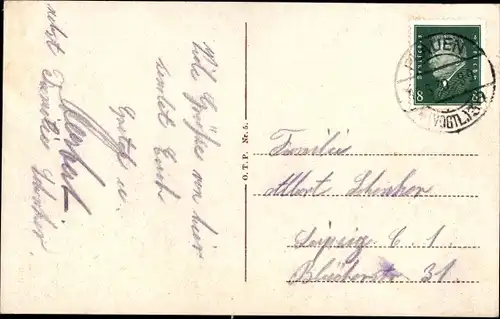 Viele Grüße von hier
sendet Euch
u.
Herbert
nebst Familie
O.T.P. Nr. 5.
PLAUEN
(VOGTL.)
8
Familie
Albert Schenker
Leipzig C. 1.
Blücherstr. 31.